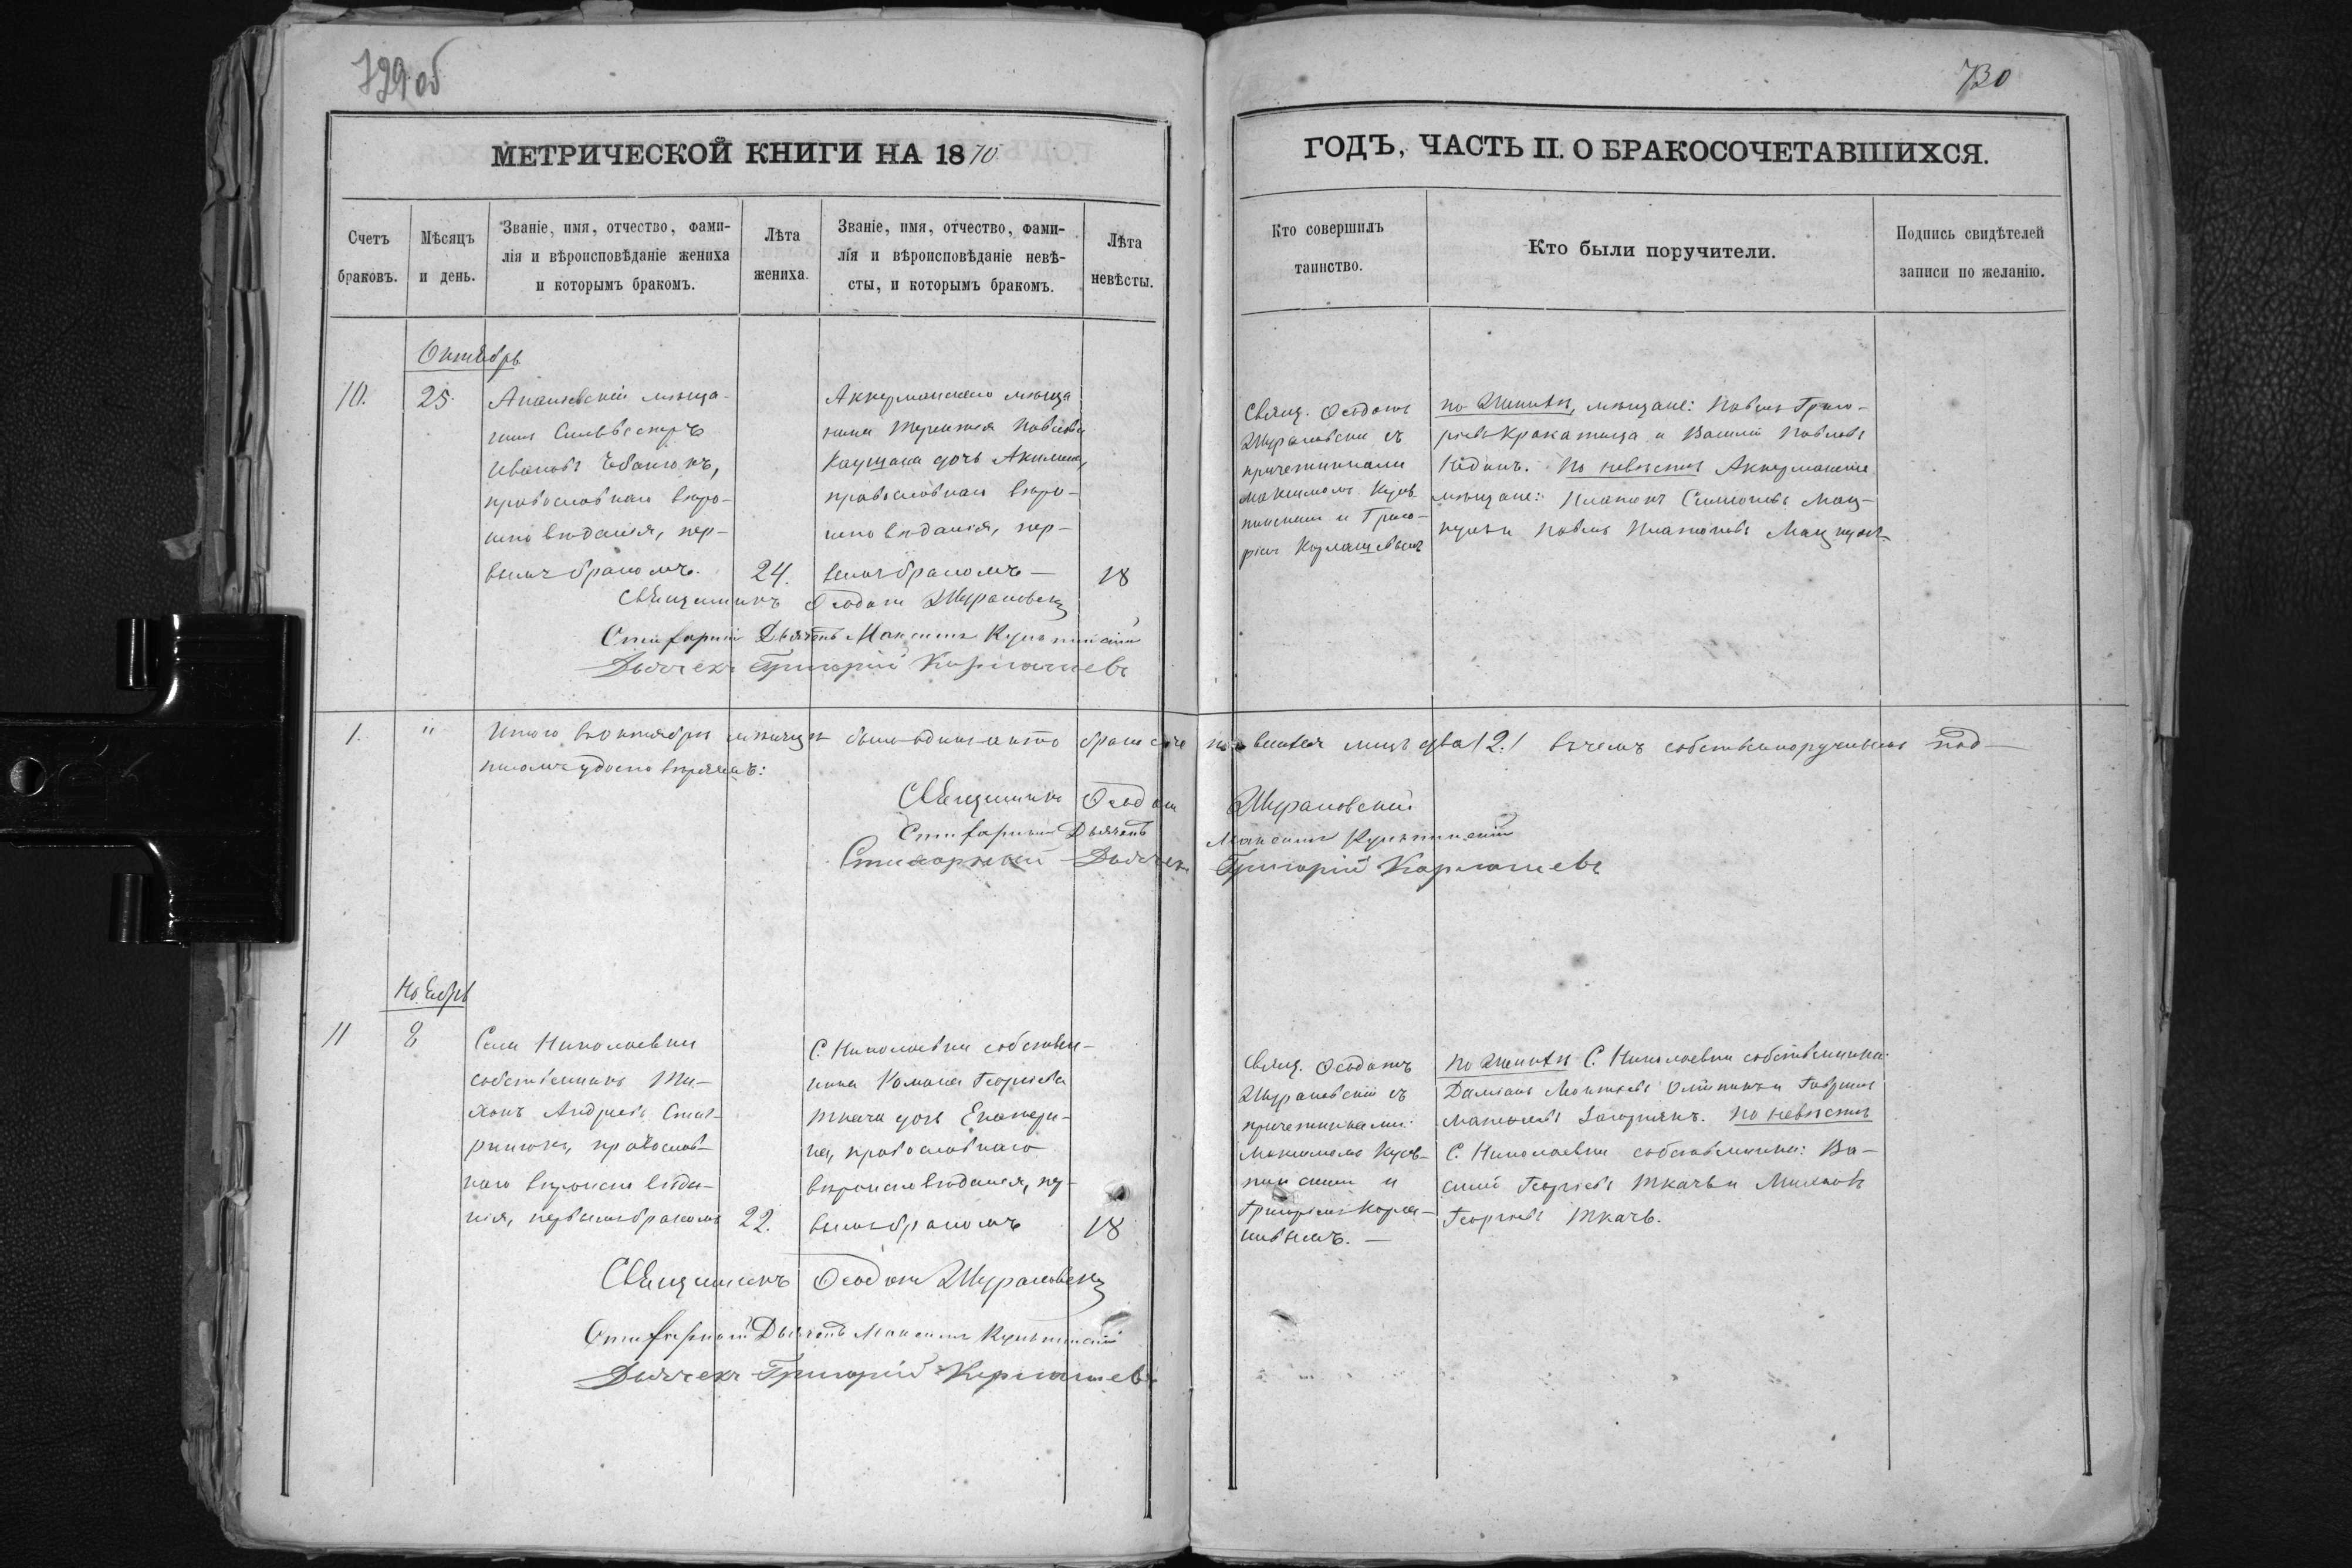 729 об
730
МЕТРИЧЕСКОЙ КНИГИ НА 1870
ГОДЪ, ЧАСТЬ II. О БРАКОСОЧЕТАВШИХСЯ.
Счетъ браковъ.
Мѣсяцъ и день.
Званіе, имя, отчество, фами-
лія и вѣроисповѣданіе жениха
и которымъ бракомъ.
Лѣта
жениха.
Званіе, имя, отчество, фами-
лія и вѣроисповѣданіе невѣ-
сты, и которымъ бракомъ.
Лѣта
невѣсты.
Кто совершилъ
таинство.
Кто были поручители.
Подпись свидѣтелей
записи по желанію.
Октябрь
10.
25.
Ананьевскій мѣща-
нинъ Сильвестръ
Ивановъ
православнаго вѣро-
исповѣданія, пер-
вымъ бракомъ.
24.
Аккерманскаго мѣща
нина Терентія Павлова
Каущана дочь Акилина,
православнаго вѣро-
исповѣданія, пер-
вымъ бракомъ —
18
Свящ. Ѳеодотъ
Шурановскій съ
причетниками
Максимомъ
и Григо-
ріемъ
по Женихѣ, мѣщане: Павелъ Григо-
рьевъ Кракатица и Василій Павловъ
по невѣстѣ Аккерманскіе
мѣщане: Платонъ Симеоновъ Мац-
Павелъ Платоновъ
Священникъ Ѳеодотъ Шурановскій
Стихарный Дьячекъ Максимъ
Дьячекъ Григорій Карлашевъ
1.
"
Итого въ октябрѣ мѣсяцѣ было одинъ а кто бракосоче
тавшихся лицъ два /2./ въ чемъ собственноручнымъ под-
писомъ удостовѣряемъ:
Священникъ Ѳеодотъ Шурановскій
Стихарный Дьячекъ Максимъ
Стихарный Дьячекъ Григорій Карлашевъ
Ноябрь
11
8
Села Николаевки
собственникъ Ти-
хонъ Андреевъ
православ-
наго вѣроисповѣда-
нія, первымъ бракомъ
22.
С. Николаевки собствен-
ника Романа Георгіева
Ткача дочь Екатери-
на, православнаго
вѣроисповѣданія, пер-
вымъ бракомъ
18
Свящ. Ѳеодотъ
Шурановскій съ
причетниками:
Максимомъ
и
Григоріемъ Карла-
шевымъ. —
по Женихѣ С. Николаевки собственники:
Даміанъ и Гавріилъ
по невѣстѣ
С. Николаевки собственники: Ва-
силій Георгіевъ Ткачъ и
Георгіевъ Ткачъ.
Священникъ Ѳеодотъ Шурановскій
Стихарный Дьячекъ Максимъ
Дьячекъ Григорій Карлашевъ